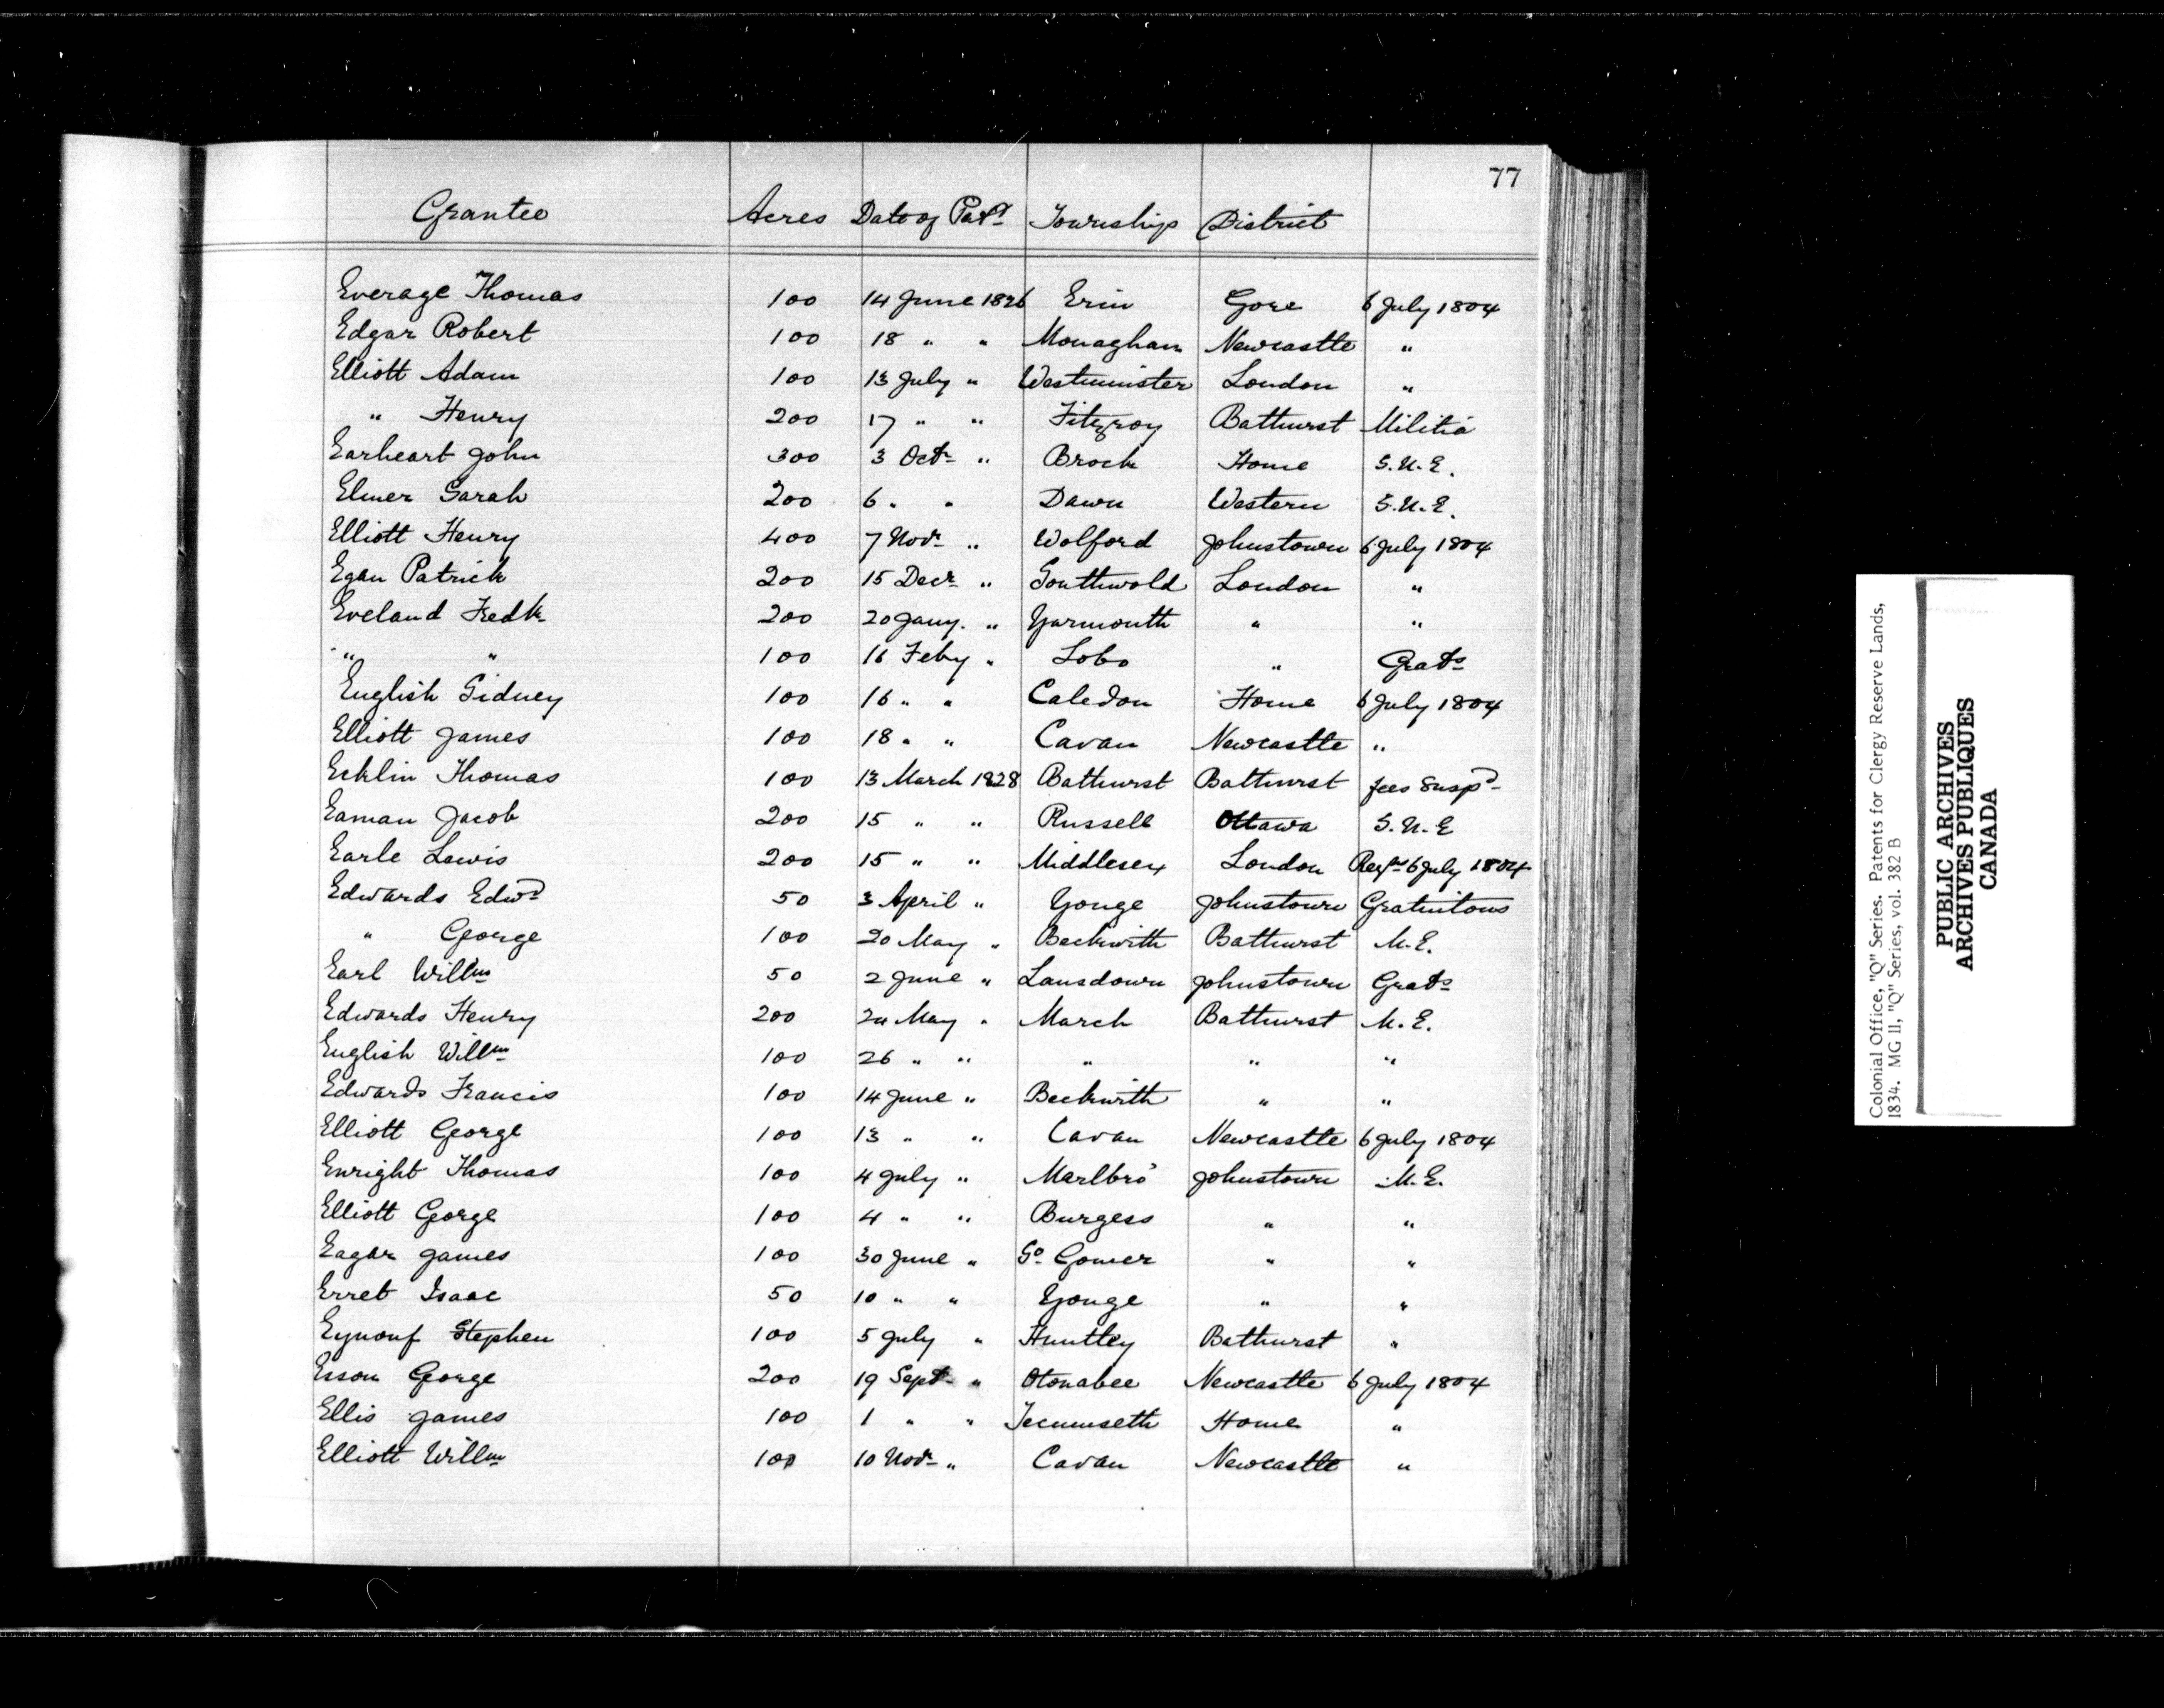 77
Grantee Acres Date of Pat^t Township District
Everage Thomas 100 14 June 1826 Erin Gore 6 July 1804
Edgar Robert 100 18 " " Monaghan Newcastle "
Elliott Adam 100 13 July " Westminister London "
" Henry 200 17 " " Fitzroy Bathurst Militia
Earheart John 300 3 Octr " Brock Home S.U.E.
Elmer Sarah 200 6 " " Dawn Western S.U.E.
Elliott Henry 400 7 Novr " Wolford Johnstown 6 July 1804
Egan Patrick 200 15 Decr " Southwold London "
Eveland Fredk 200 20 Jany. " Yarmouth " "
" " 100 16 Feby " Lobo " Grats
English Sidney 100 16 " " Caledon Home 6 July 1804
Elliott James 100 18 " " Cavan Newcastle "
Echlin Thomas 100 13 March 1828 Bathurst Bathurst fees Suspd
Eaman Jacob 200 15 " " Russell Ottawa S.U.E
Earle Lewis 200 15 " " Middlesex London Regns 6 July 1804
Edwards Edwd 50 3 April " Yonge Johnstown Gratuitous
" George 100 20 May " Beckwith Bathurst M.E.
Earl Willm 50 2 June " Lansdown Johnstown Grats
Edwards Henry 200 24 May " March Bathurst M.E.
English Willm 100 26 " " " " "
Edwards Francis 100 14 June " Beckwith " "
Elliott George 100 13 " " Cavan Newcastle 6 July 1804
Enright Thomas 100 4 July " Marlbro' Johnstown M.E.
Elliott George 100 4 " " Burgess " "
Eagar James 100 30 June " So Gomer " "
Erret Isaac 50 10 " " Yonge " "
Eynouf Stephen 100 5 July " Huntley Bathurst "
Esson George 200 19 Sept " Otonabee Newcastle 6 July 1804
Ellis James 100 1 " " Tecumseth Home "
Elliott Willm 100 10 Novr " Cavan Newcastle "
Colonial Office, "Q" Series. Patents for Clergy Reserve Lands,
1834. MG 11, "Q" Series, vol. 382 B
PUBLIC ARCHIVES
ARCHIVES PUBLIQUES
CANADA